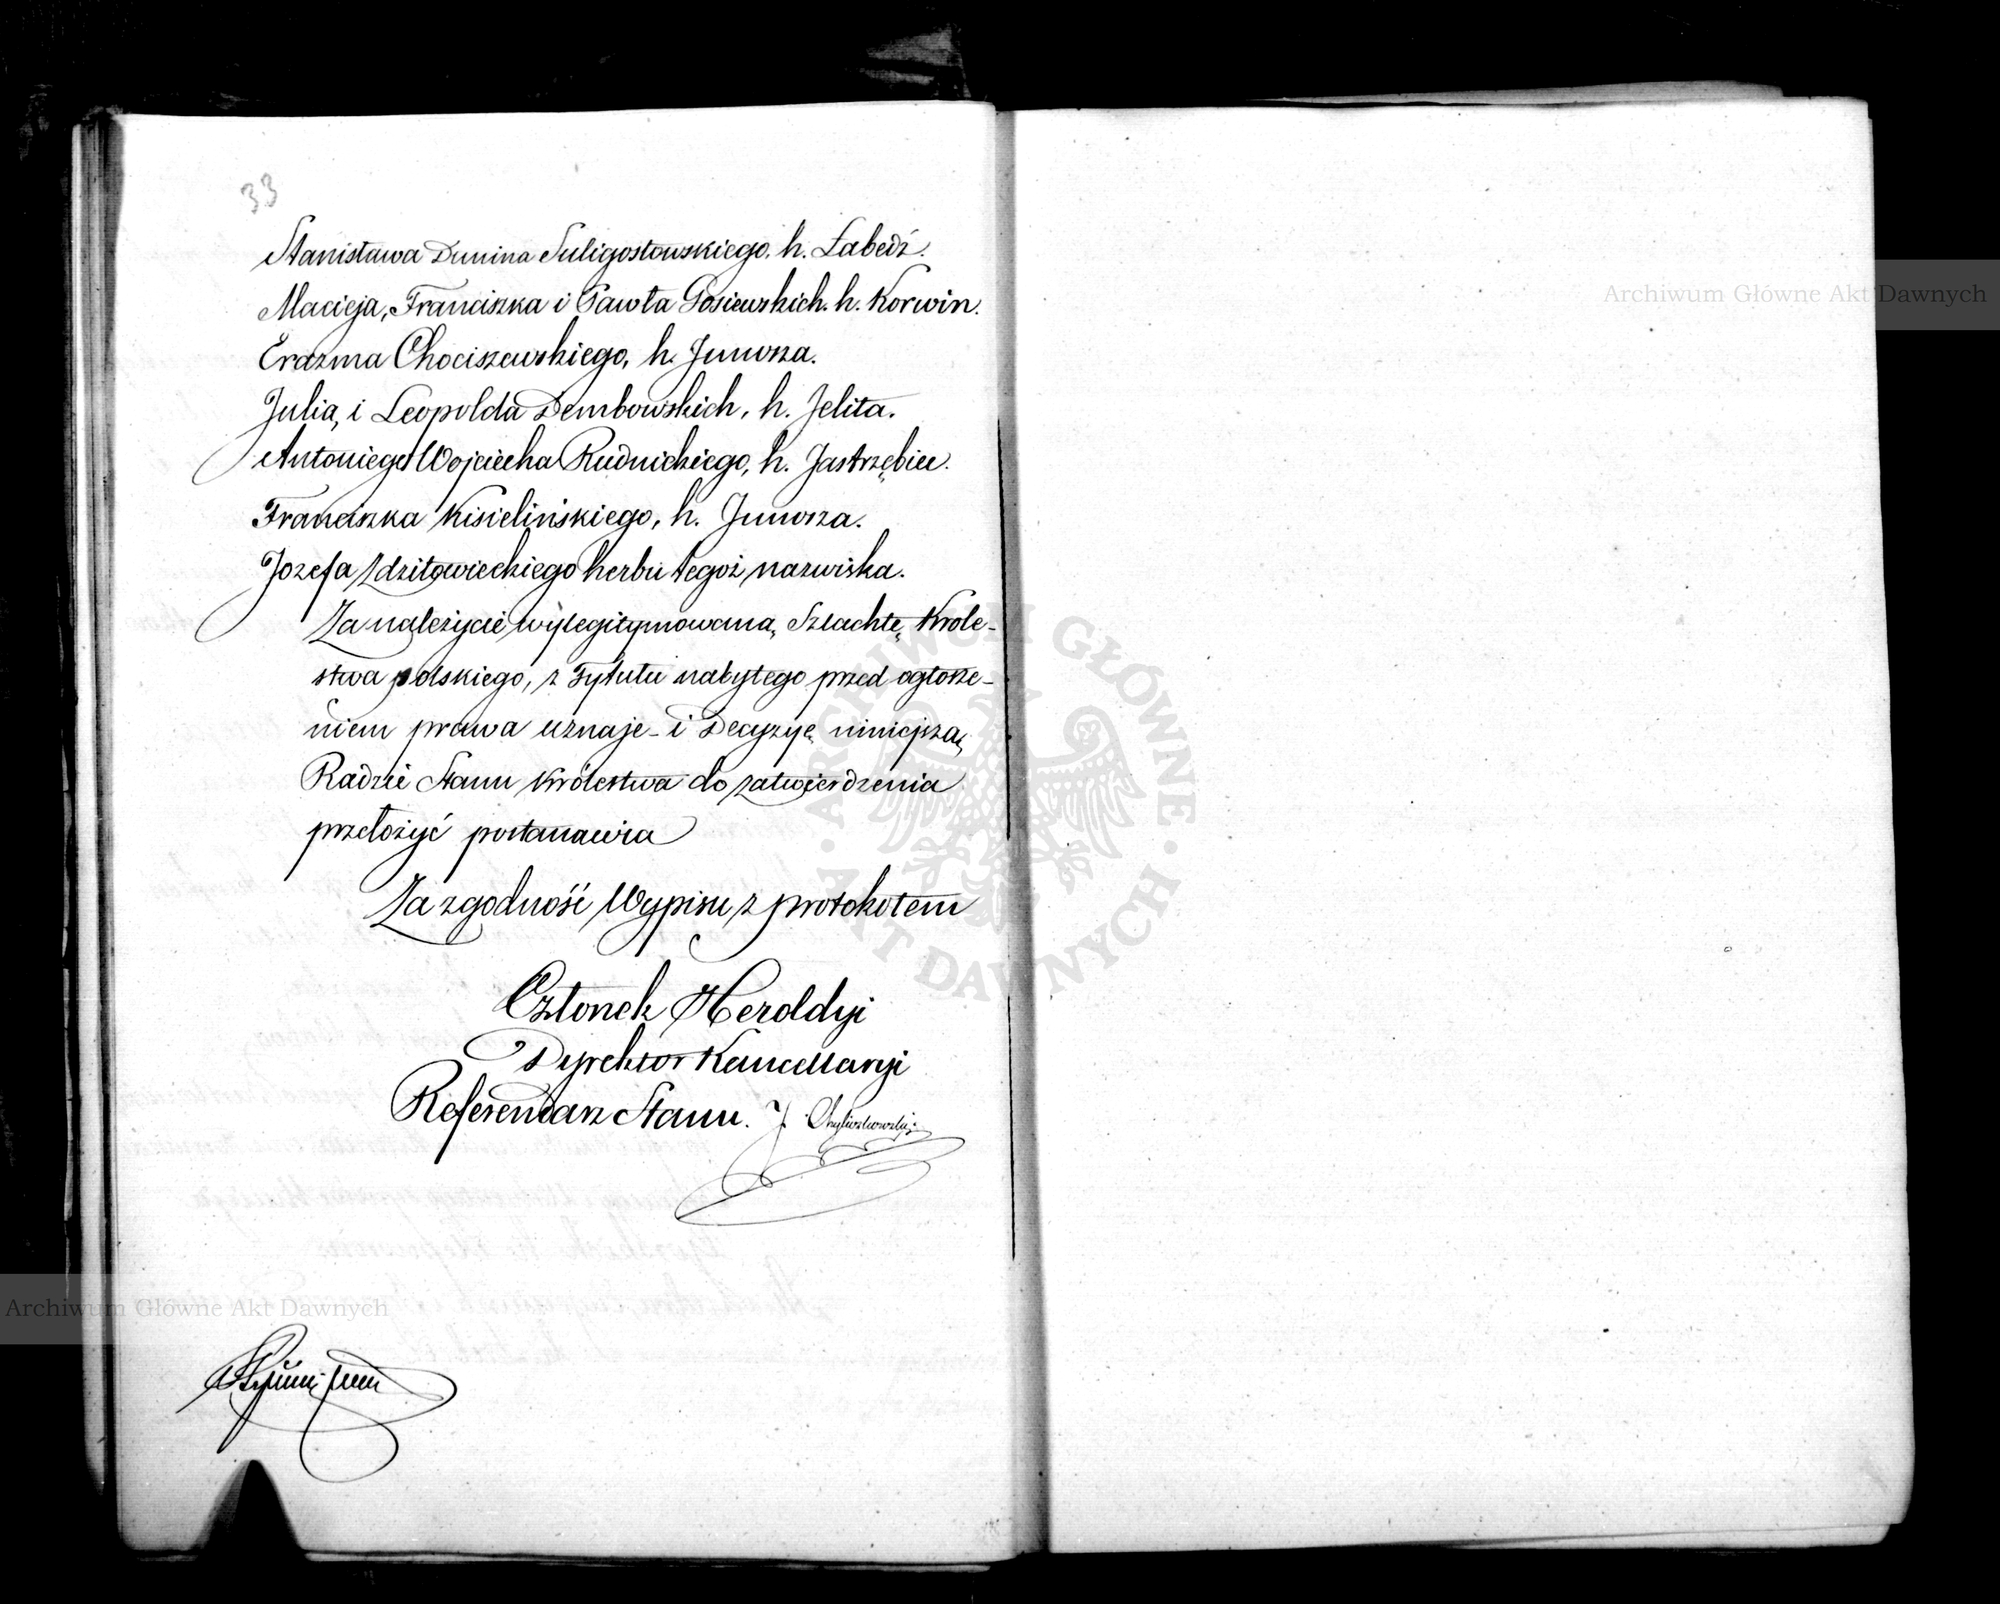 33
Stanisława Dunina Suligostowskiego. h. Łabędź.
Macieja, Franciszka i Pawła Gosiewskich. h. Korwin.
Erazma Chociszewskiego, h. Junosza.
Julia, i Leopolda Dembowskich, h. Jelita.
Antoniego Wojciecha Rudnickiego, h. Jastrzębiec.
Franciszka Kisielińskiego, h. Junosza.
Józefa Zdzitowieckiego herbu tegoż nazwiska.
Za należycie wylegitymowaną, Szlachtę, Króle-
stwa polskiego, z Tytułu nabytego przed ogłosze-
niem prawa uznaje - i Decyzyę niniejszą,
Radzie Stanu Królestwa do zatwierdzenia
przełożyć postanawia
Za zgodność Wypisu z protokołem
Członek Heroldyi
Dyrektor Kancellaryi
Referendarz Stanu. J.
Archiwum Główne Akt Dawnych
Archiwum Główne Akt Dawnych
ARCHIWUM GŁÓWNE
AKT DAWNYCH